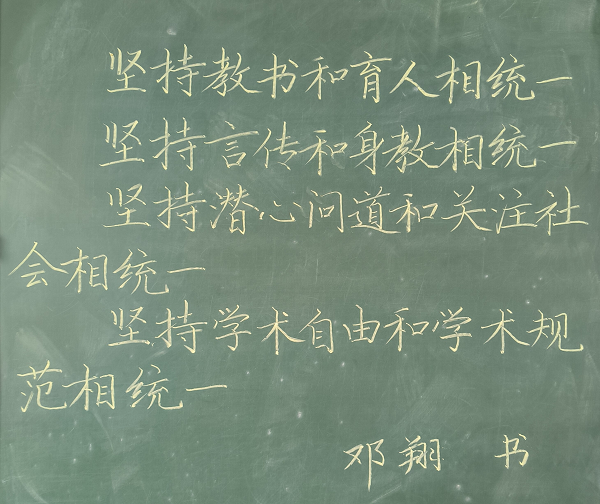 坚持教书和育人相统一
坚持言传和身教相统一
坚持潜心问道和关注社
会相统一
坚持学术自由和学术规
范相统一
邓翔 书